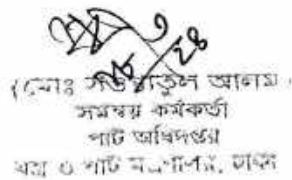 (মোঃ আলম
সমন্বয় কর্মকর্তা
পাট অধিদপ্তর
বস্ত্র ও পাট মন্ত্রণালয়, ঢাকা